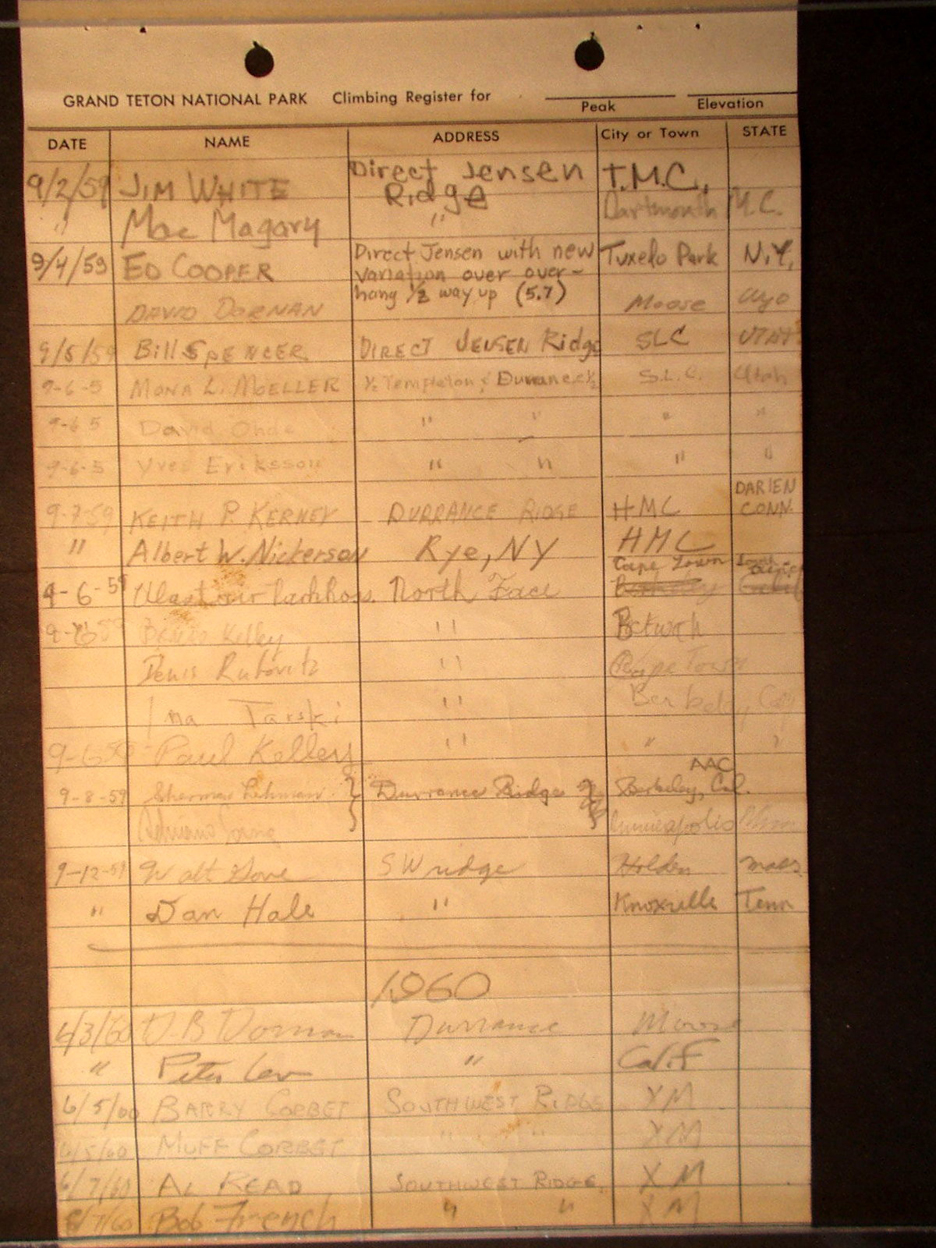 GRAND TETON NATIONAL PARK Climbing Register for
Peak Elevation
DATE NAME ADDRESS City or Town STATE
9/2/59 JIM WHITE Direct Jensen Ridge T.M.C.,
" Mac Magary " Dartmouth M.C.
9/4/59 ED COOPER Direct Jensen with new Tuxedo Park N.Y.
variation over over-
hang 1/2 way up (5.7)
DAVID DORNAN Moose Wyo
9/5/59 Bill SPENCER DIRECT JENSEN Ridge SLC UTAH
9-6-5 MONA L. MOELLER 1/2 Templeton & Durrance 1/2 S.L.C. Utah
9-6 5 David Ohde " " " "
9-6-5 Yves Eriksson " " " "
9-7-59 KEITH P. KERNEY DURRANCE RIDGE HMC DARIEN CONN.
" Albert W. Nickerson Rye, NY HMC
Cape Town
9-6-59 North Face
Kelley "
Denis Rutovitz " Cape Town
Ina Tarski " Berkeley, Cal
9-6-59 Paul Kelley " " "
AAC
9-8-59 Sherman Lehman } Durrance Ridge } Berkeley, Cal.
Minneapolis Minn
9-12-59 Walt Gove SW ridge Holden mass
" Dan Hale " Knoxville Tenn
1960
6/3/60 D.B Dornan Durrance Moose
" Peter Lev " Calif
6/5/60 BARRY CORBET SOUTHWEST RIDGE XM
6/5/60 MUFF CORBET " " XM
6/7/60 AL READ SOUTHWEST RIDGE XM
6/7/60 Bob French " " XM